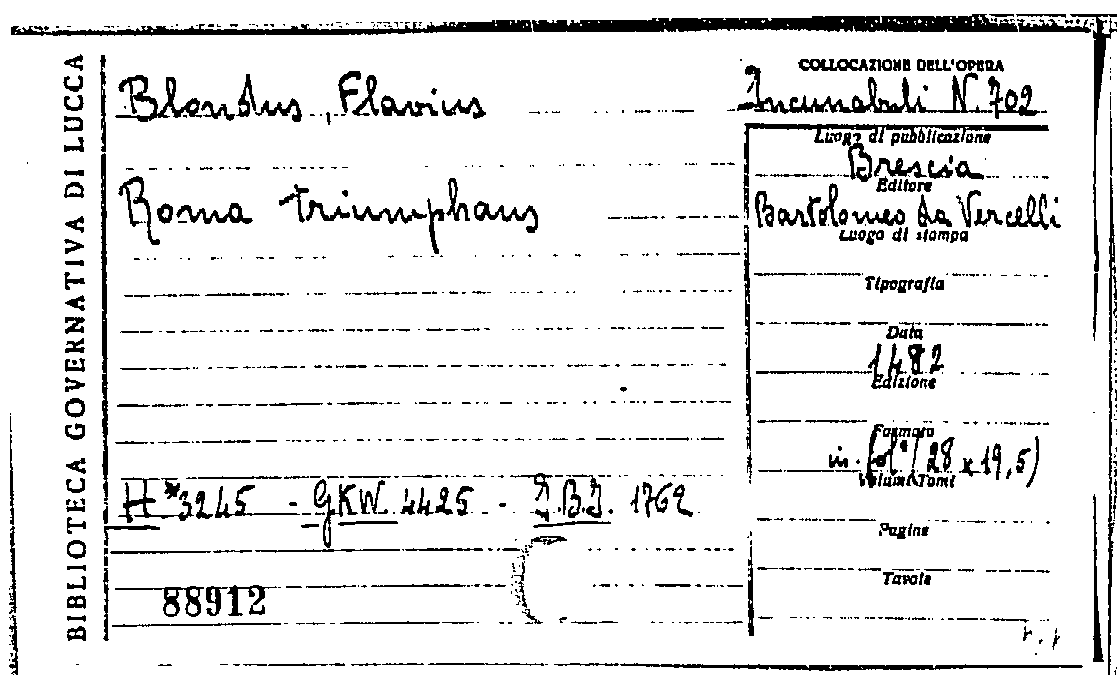 BIBLIOTECA GOVERNATIVA DI LUCCA
Blondus, Flavius
Roma triumphans
H *3245 - GKW. 4425 - I.B.I. 1762
88912
COLLOCAZIONE DELL'OPERA
Incunabuli N. 702
Luogo di pubblicazione
Brescia
Editore
Bartolomeo da Vercelli
Luogo di stampa
Tipografia
Data
1482
Edizione
Formato
in fol° (28 x 19,5)
Volumi/Tomi
Pagine
Tavole